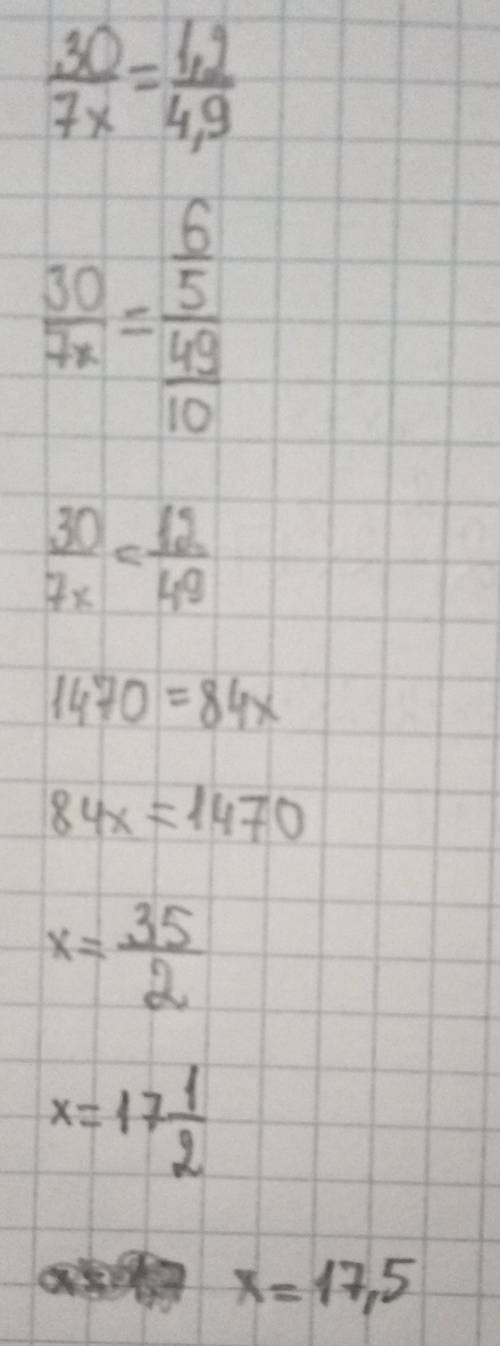 30/7x = 1,2/4,9
30/7x = (6/5)/(49/10)
30/7x = 12/49
1470 = 84x
84x = 1470
x = 35/2
x = 17 1/2
x = 17,5